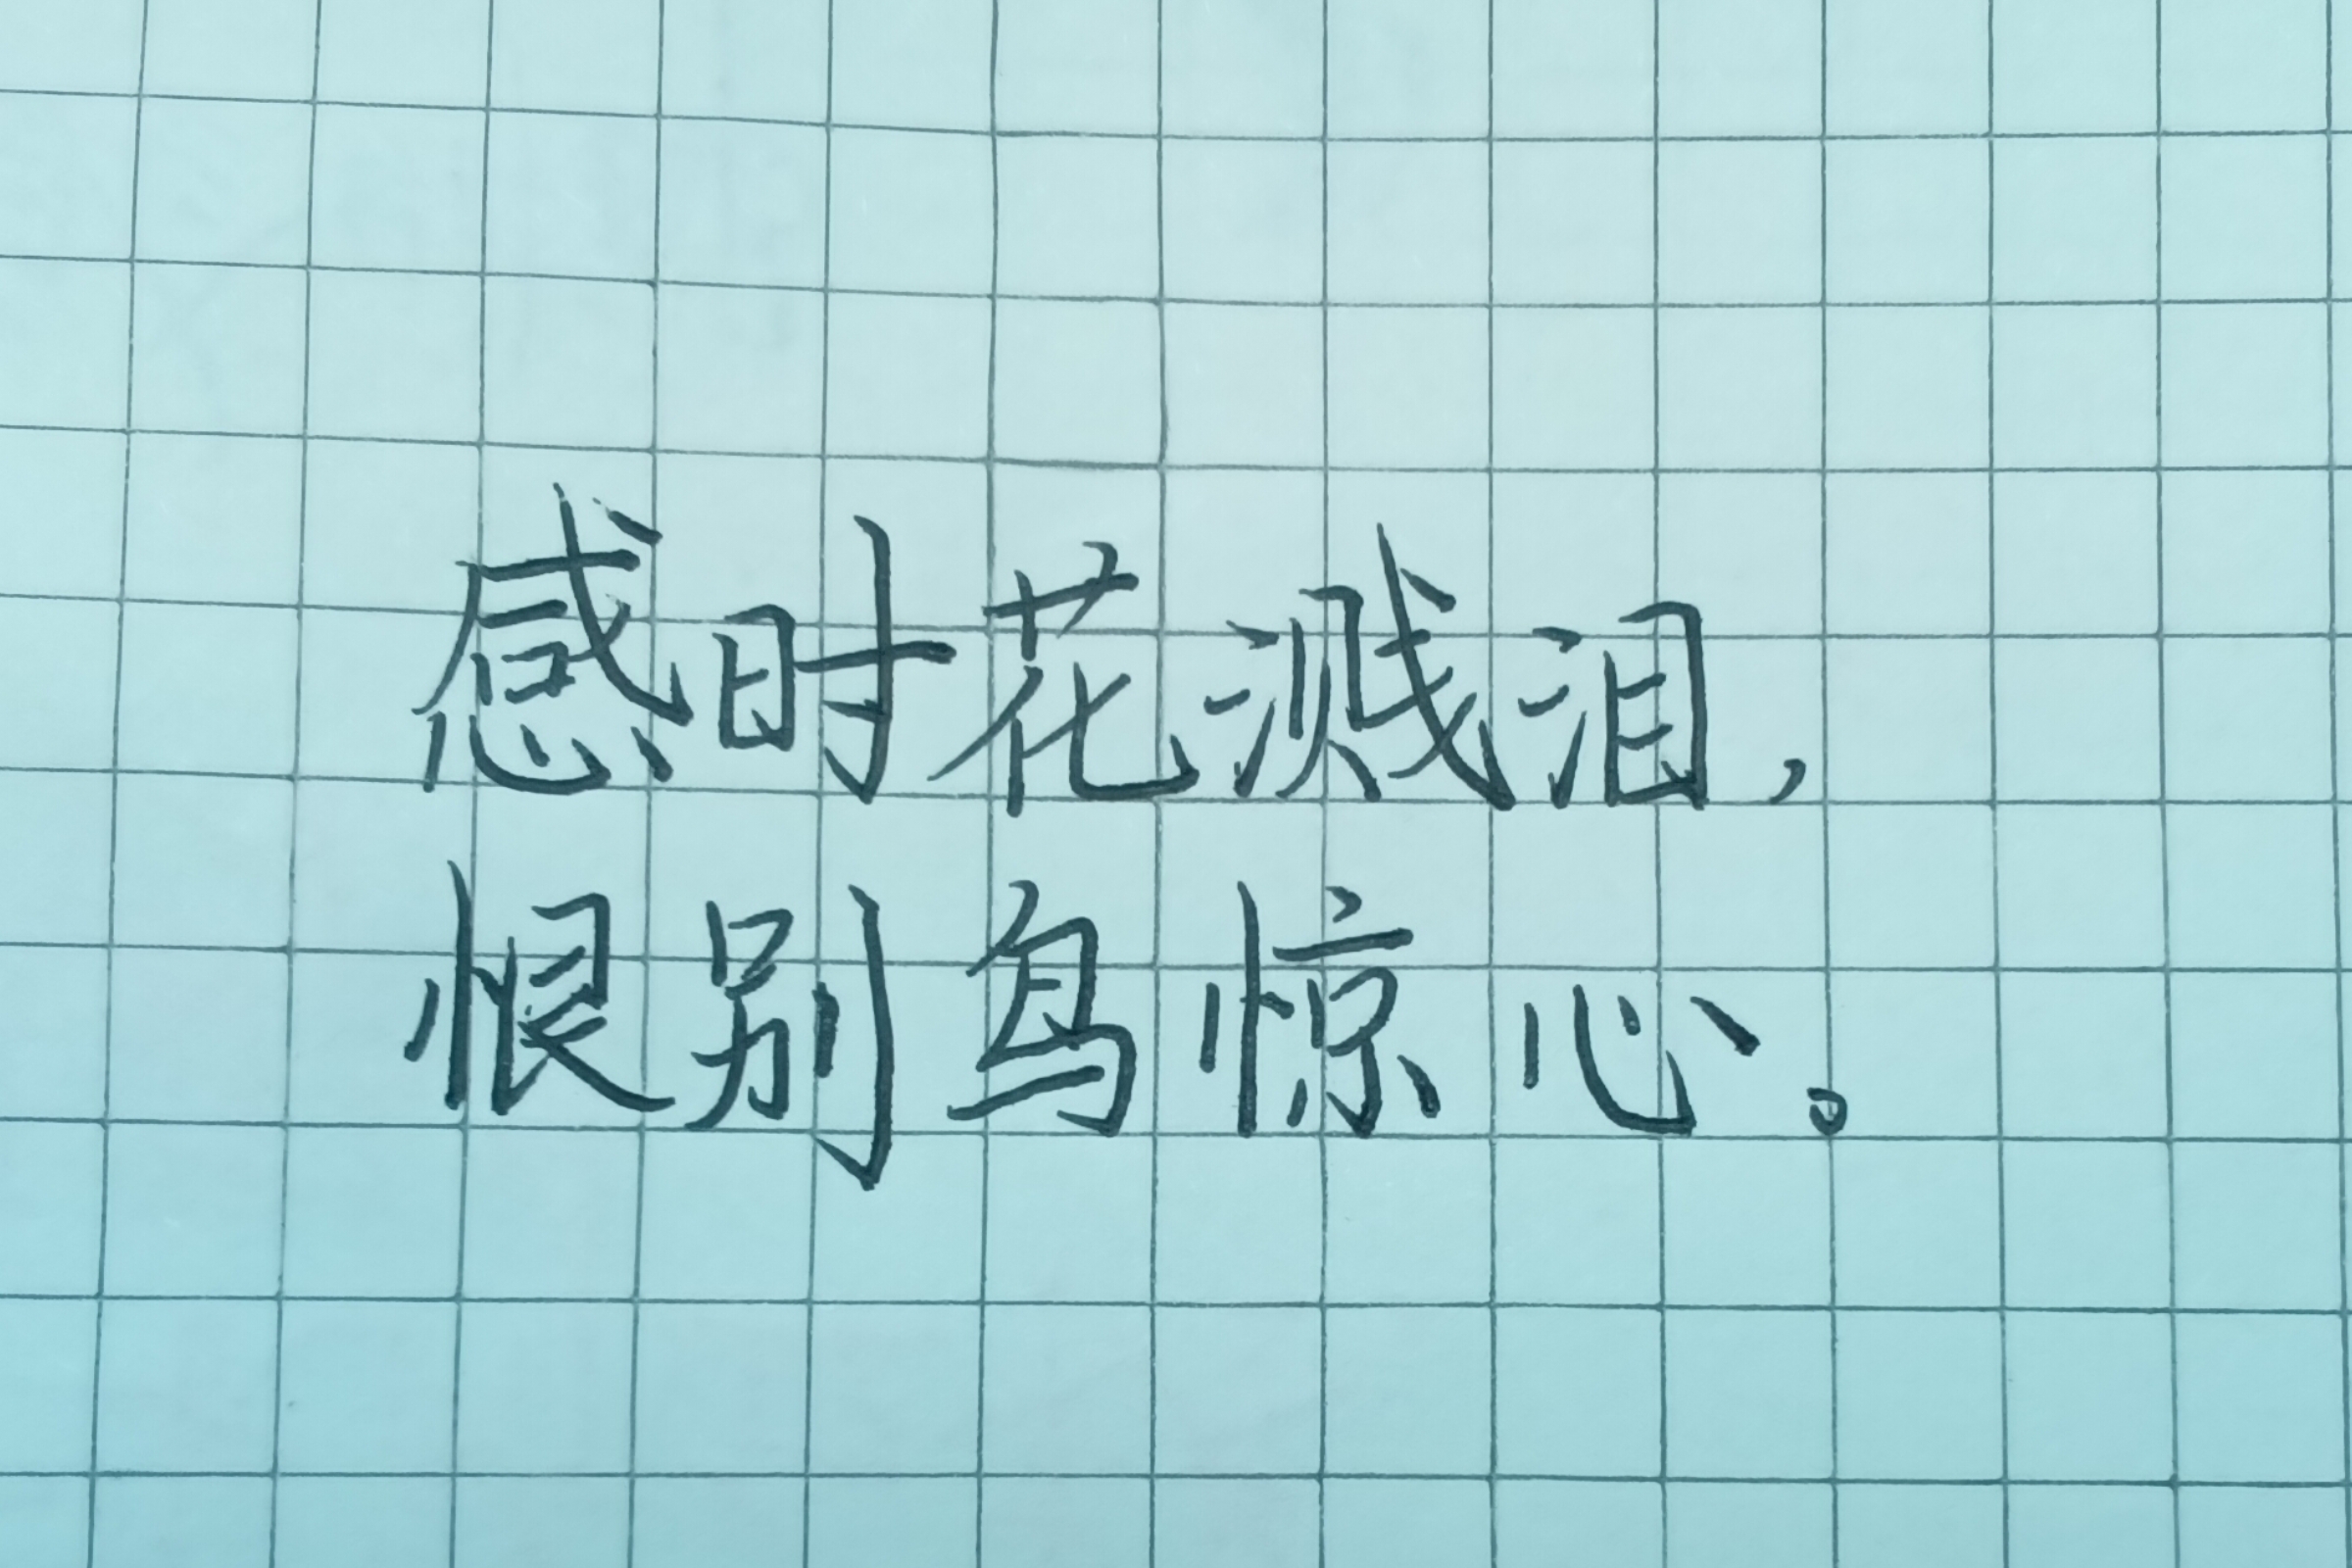 感时花溅泪，
恨别鸟惊心。